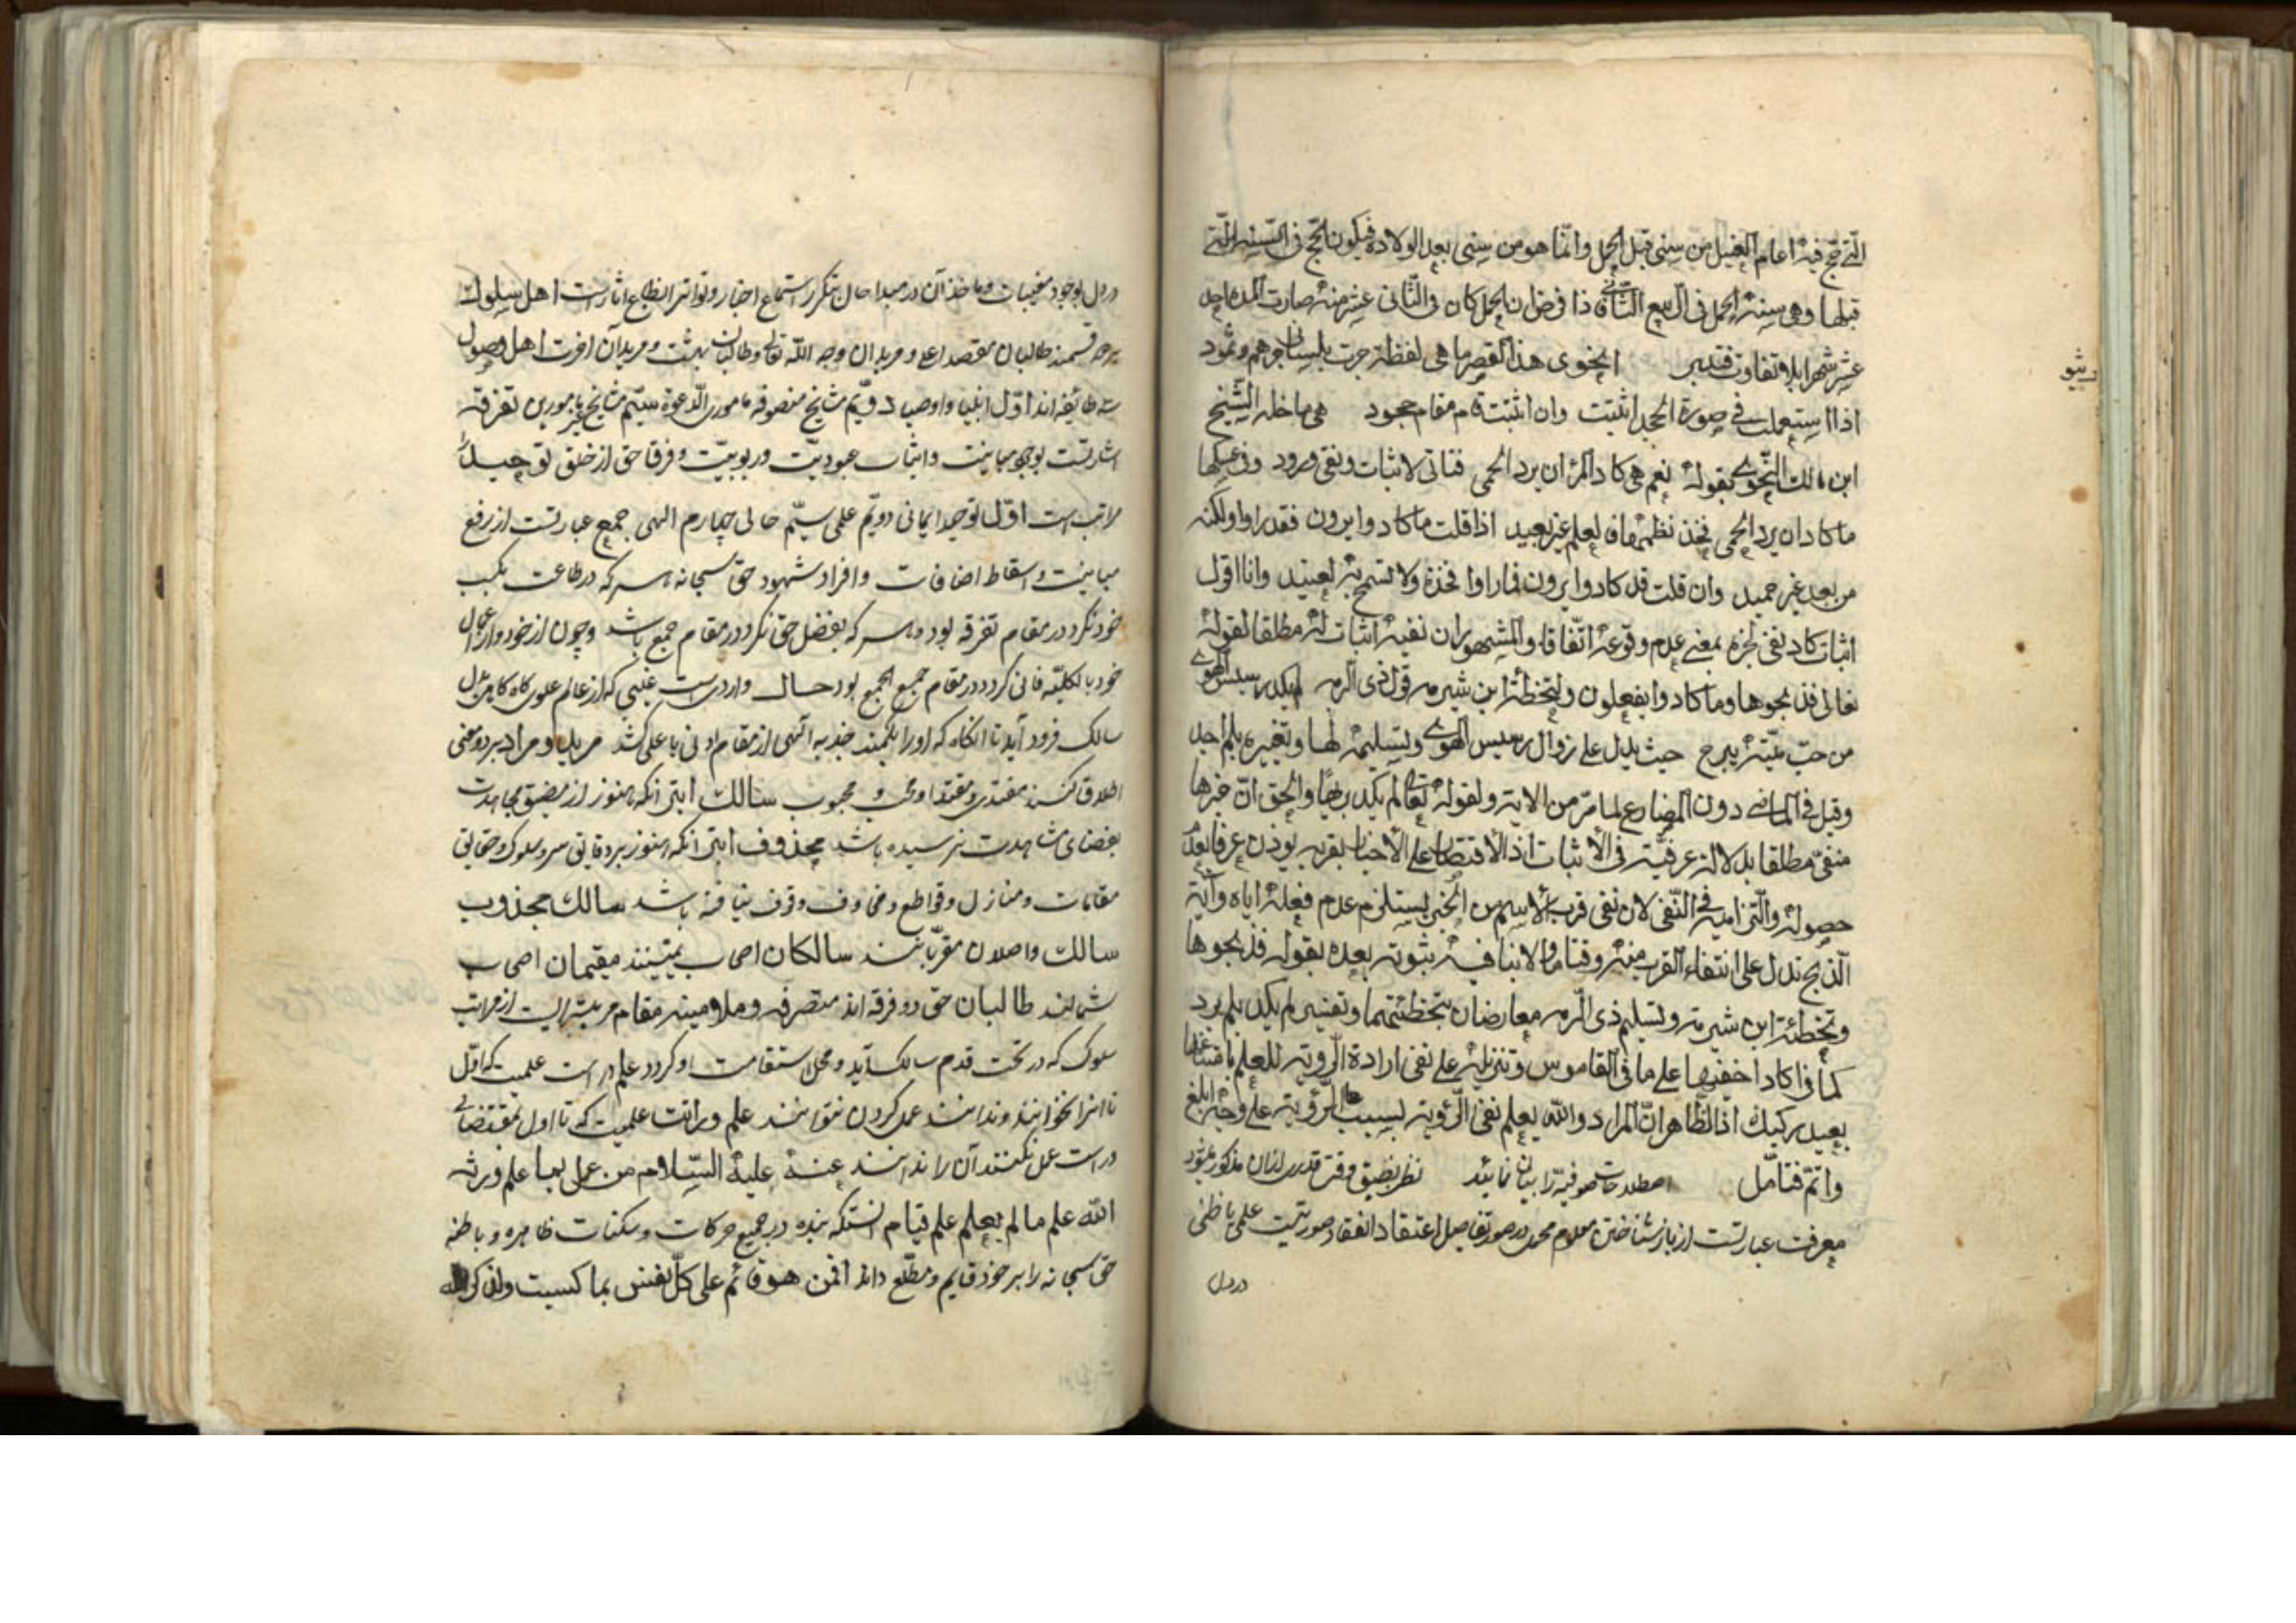 الّتی حجّ فیه اعام الفیل من سنی قبل الحمل وانّما هو من سنی بعد الولاده فیکون الحجّ فی السّنه الّتی
قبلها وهی سنة الحمل فی الربیع الثّانی فاذا فرض ان الحمل کان فی الثّانی عشر منه صارت المده احد
عشر شهرا بلا تفاوت فتدبر انحوی هذا العصر ما هی لفظة جرت بلسانی جرهم وثمود
اذا استعملت فی صورة الجحد اثبتت وان اثبتت قام مقام جحود هی ما خله الشّیخ
ابن مالک النّحوی بقوله نعم هی کاد المرء ان یرد الحمی فتاتی لاثبات ونفی ورود وفی عکسها
ما کاد ان یرد الحمی فخذ نظمها فالعلم غیر بعید اذا قلت ما کادوا یرون فقد راوا ولکنه
من بعد غیر حمید وان قلت قد کادوا یرون فما راوا فخذه ولا تسمح به لعنید وانا اقول
اثبات کاد نفی لخبره بمعنی عدم وقوعه اتّفاقا والمشهور ان نفیه اثبات له مطلقا لقوله
تعالی فذبحوها وما کادوا یفعلون ولتخطئة ابن شبرمه قول ذی الرمه لم یکد رسیس الهوی
من حبّ میّة یبرح حیث یدل علی زوال رسیس الهوی وتسلیمه لها وتغییره بلم اجد
وقیل فی الماضی دون المضارع لما مرّ من الایة ولقوله تعالی لم یکد یریها والحق انّ خبرها
منفیّ مطلقا بدلالة عرفیّة فی الاثبات اذ الاقتصار علی الاخبار بقربه یوذن عرفا بعدم
حصوله والتزامیه فی النّفی لان نفی قرب الاسم من الخبر یستلزم عدم فعله ایاه وآیة
الذبح تدل علی انتفاء القرب منه وقتا ما ولا ینافیه ثبوته بعده بقوله فذبحوها
وتخطئة ابن شبرمه وتسلیم ذی الرمه معارضان بتخطئتهما وتفسیر لم یکد بلم یرد
کما فی اکاد اخفیها علی ما فی القاموس وتنزیله علی نفی ارادة الرویة للعلم بامتناعها
بعید رکیک اذ الظاهر انّ المراد والله یعلم نفی الرّویة بسبب الرّؤیة علی وجه ابلغ
واتم فتامّل اصطلاحات صوفیّه را بیان نمائید نظر بضیق وقت قدری ازان مذکور میشود
معرفت عبارتست از باز شناختن معلوم مجمل در صور تفاصیل اعتقاد انعقاد صورتیست علمی یا ظنی
در دل
در دل بوجود مغیبات وماخذ آن در مبدا حال بتکرر استماع اخبار وتواتر انطباع اثارست اهل سلوک
بر دو قسمند طالبان مقصد اعلی ومریدان وجه الله تعالی وطالبان بهشت ومریدان اخرت اهل وصول
سه طائفه اند اوّل انبیا واوصیا دویّم مشایخ متصوفه مامورین الدّعوة سیّم مشایخ غیر مامورین تفرقه
اشارتست بوجود مباینت واثبات عبودیّت وربوبیّت وفرق حق از خلق توحید را
مراتب است اوّل توحید ایمانی دویّم علمی سیّم حالی چهارم الهی جمع عبارتست از رفع
مباینت واسقاط اضافات وافراد شهود حق سبحانه هر که در طاعت بکسب
خود نگرد در مقام تفرقه بود وهر که بفضل حق نگرد در مقام جمع باشد وچون از خود واعمال
خود بالکلیّه فانی گردد در مقام جمع الجمع بود حال واردیست غیبی که از عالم علوی گاه گاه بدل
سالک فرود آید تا انگاه که او را بکمند جذبه الهی از مقام ادنی باعلی کشد مرید ومراد بر دو معنی
اطلاق کنند مقتدی ومقتدا ومحب ومحبوب سالک ابتر انکه هنوز از مضیق مجاهدت
بفضای مشاهدت نرسیده باشد مجذوب ابتر انکه هنوز بر دقایق سیر وسلوک وحقایق
مقامات ومنازل وقواطع ومخاوف وقوف نیافته باشد سالک مجذوب
سالک واصلان مقرّبانند سالکان اصحاب یمینند مقیمان اصحاب
شمالند طالبان حق دو فرقه اند متصرفه وملامیه مقام مرتبه‌ایست از مراتب
سلوک که در تحت قدم سالک آید ومحل استقامت او گردد علم دراست علمیست که اوّل
تا انرا نخوانند وندانند عمل کردن نتوانند علم وراثت علمیست که تا اول بمقتضای
دراست عمل نکنند آن را ندانند عنه علیه السّلام من عمل بما علم ورثه
الله علم ما لم یعلم علم قیام انستکه بنده در جمیع حرکات وسکنات ظاهره وباطنه
حق سبحانه را بر خود قایم ومطّلع داند افمن هو قائم علی کلّ نفس بما کسبت ولذکر الله